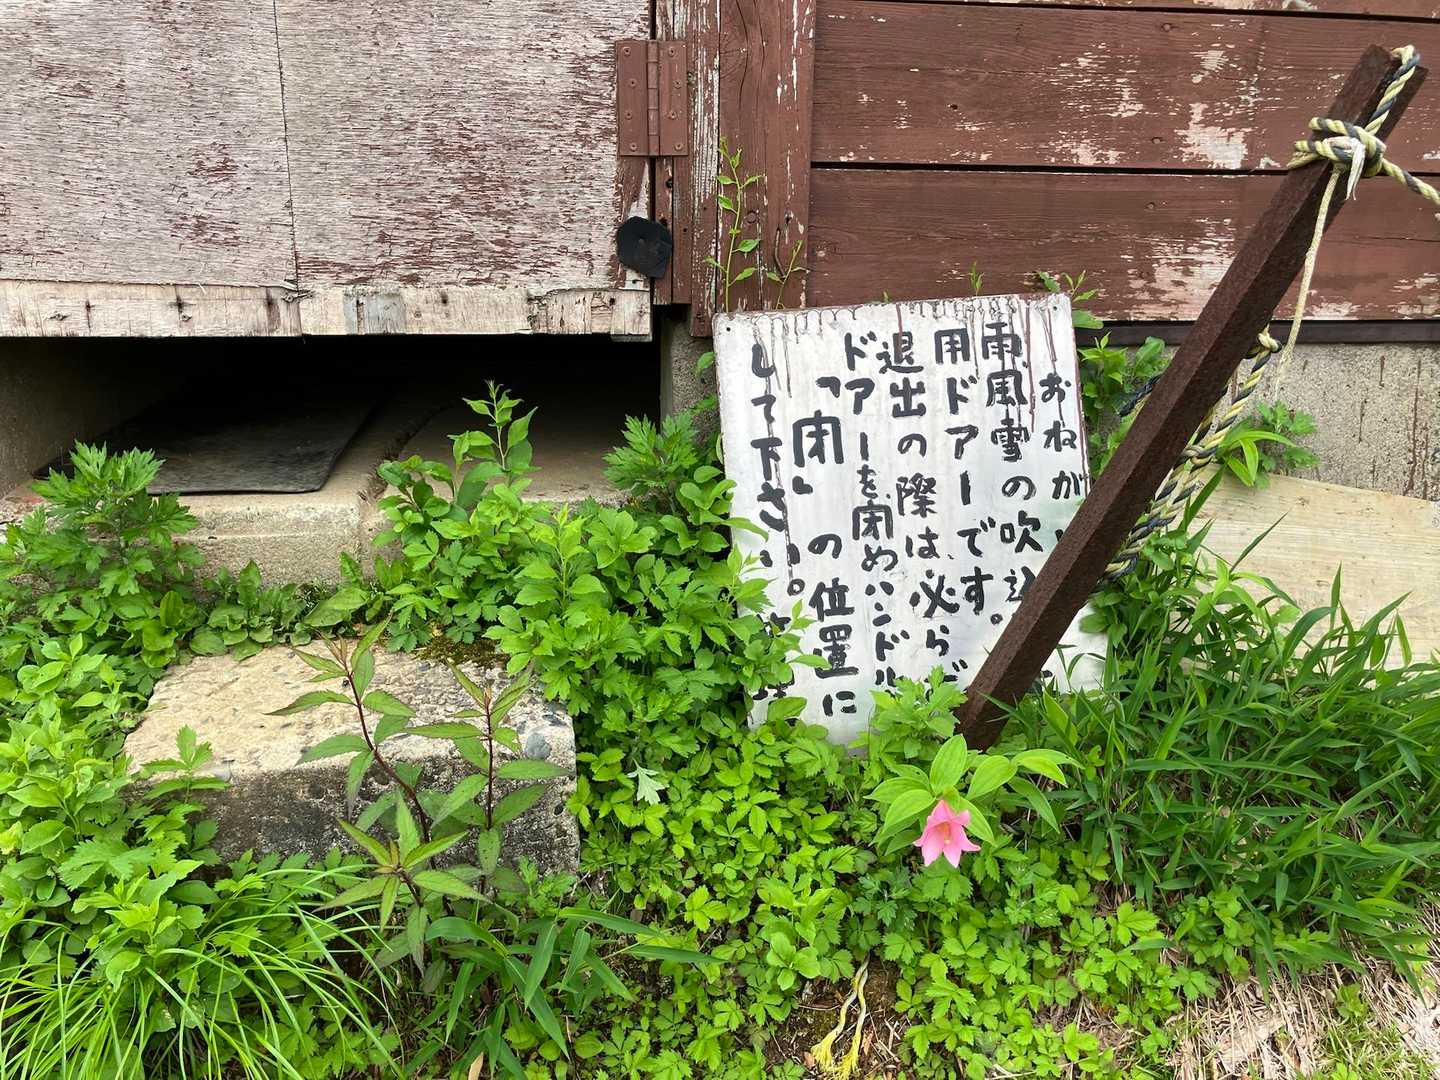 おねが
雨、風雪の吹込
用ドアーです。
退出の際は、必ら
ドアーを閉めハンドル
「閉」の位置に
して下さい。